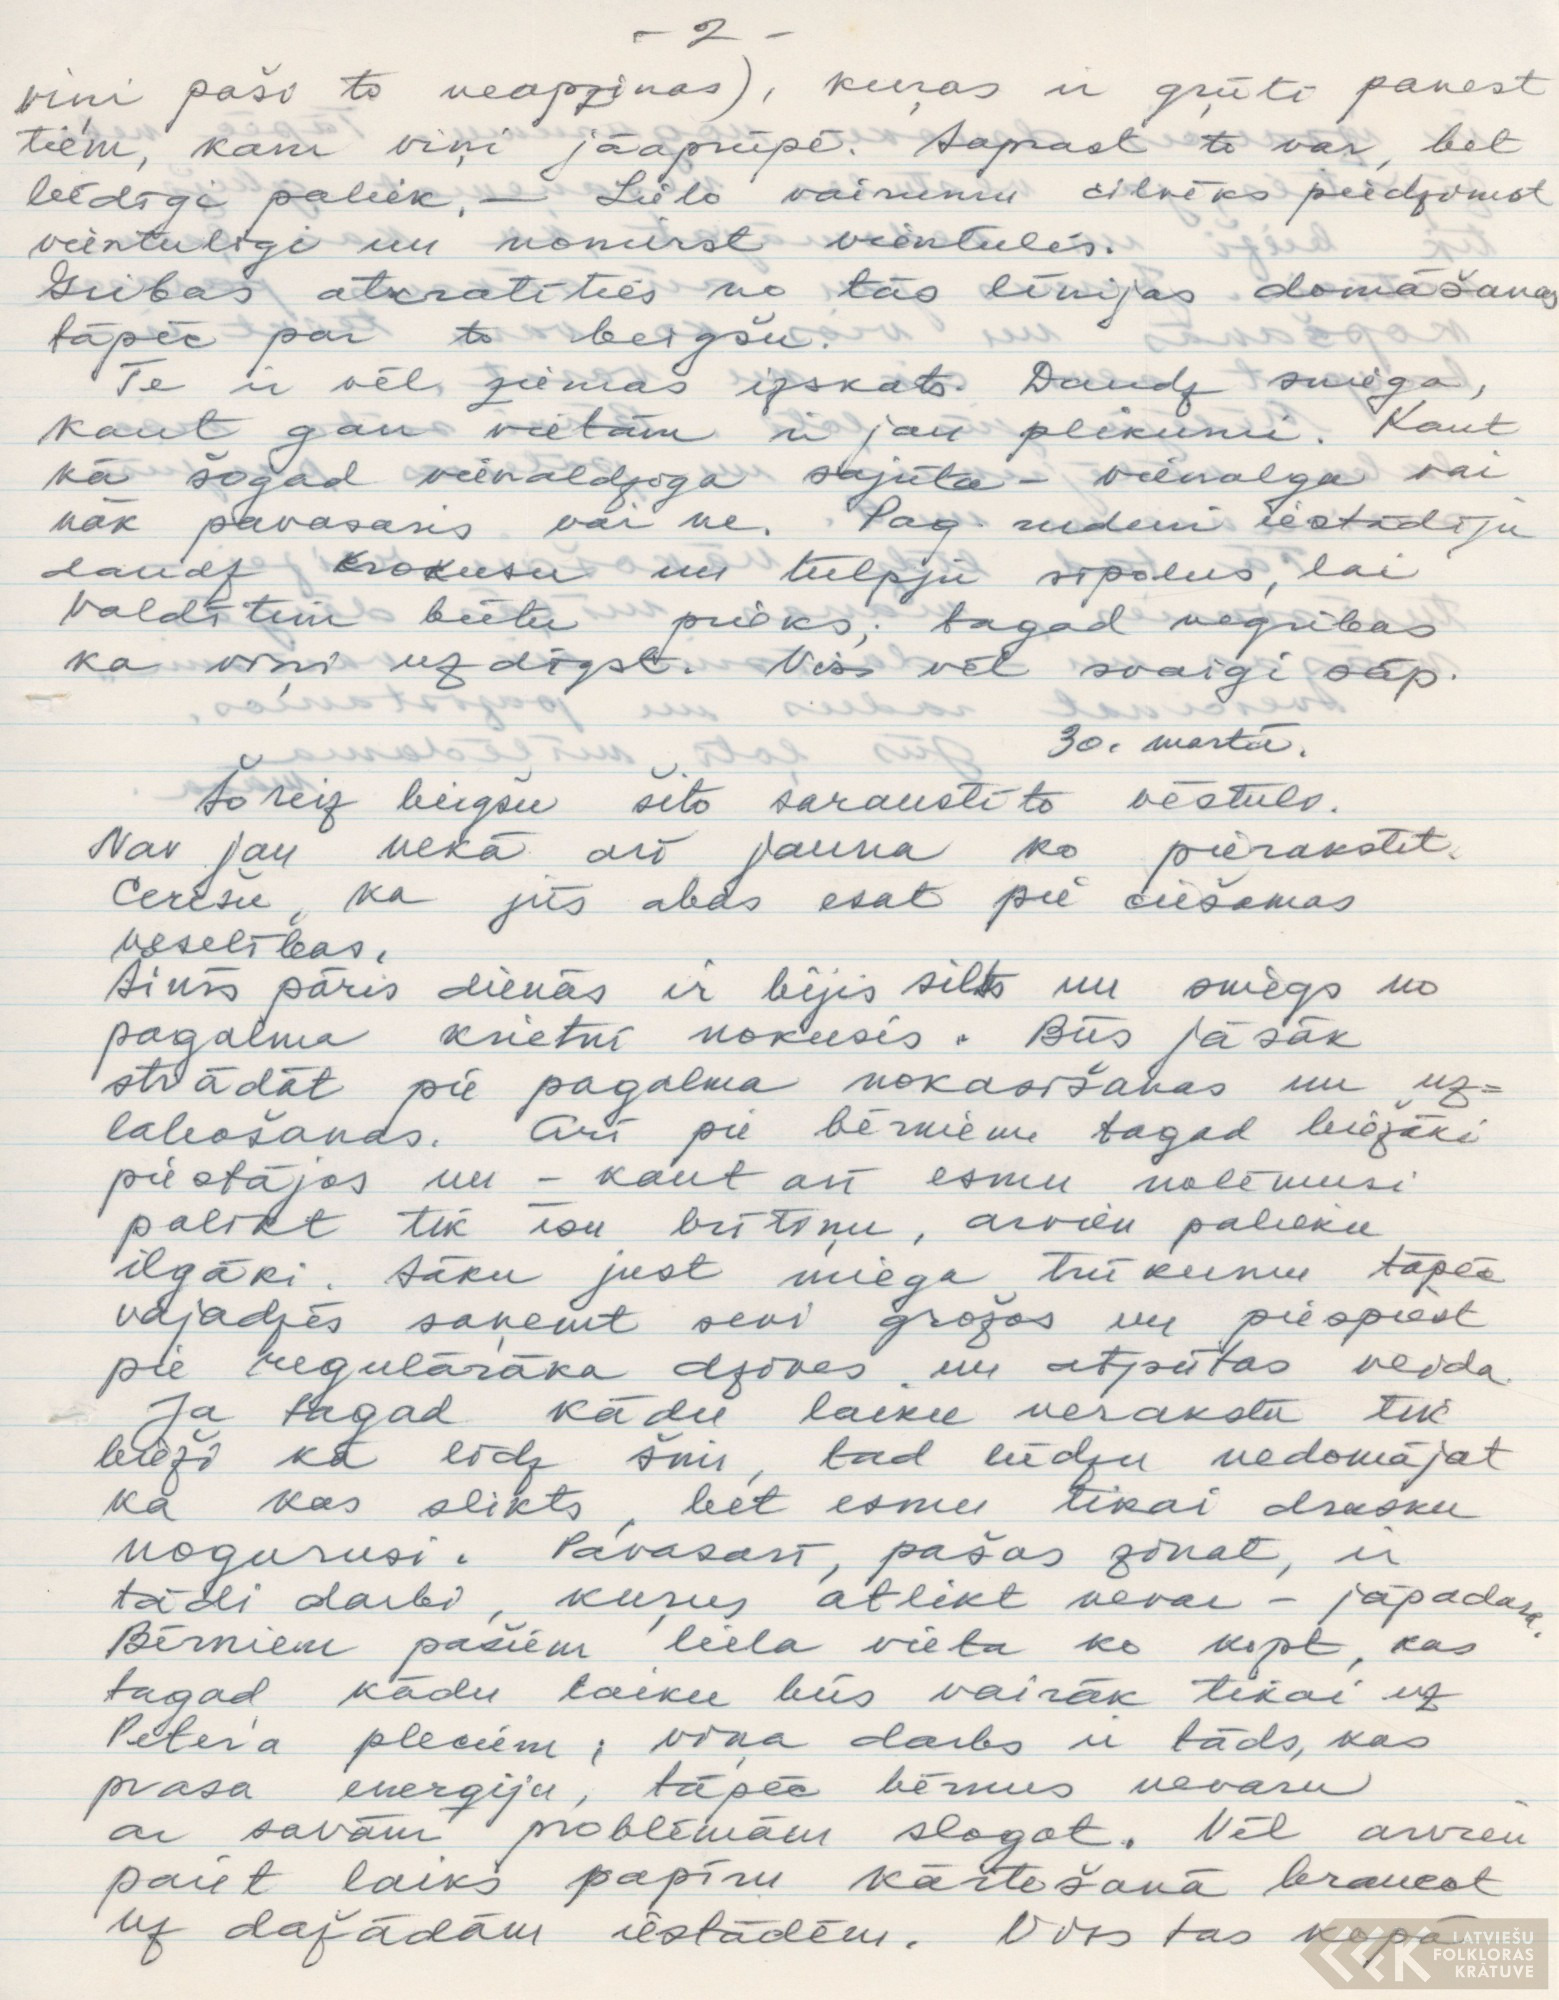 - 2 -
viņi paši to neapzinas), kuŗas ir grūti panest
tiem, kam viņi jāaprūpē. Saprast to var, bet
bēdīgi paliek. — Lielo vairumu cilvēks piedzimst
vientulīgi un nomirst vientulis.
Gribas atkratīties no tās līnijas domāšanas
tāpēc par to beigšu.
Te ir vēl ziemas izskats. Daudz sniega,
kaut gan vietām ir jau plikumi. Kaut
kā šogad vienaldzīga sajūta - vienalga vai
nāk pavasaris vai ne. Pag. rudeni iestādīju
daudz krokusu un tulpju sīpolus, lai
Valdītim būtu prieks; tagad negribas
ka viņi uzdīgst. Viss vēl svaigi sāp.
30. martā.
Šoreiz beigšu šito saraustīto vēstuli.
Nav jau nekā arī jauna ko pierakstīt.
Cerēšu, ka jūs abas esat pie ciešamas
veselības.
Šinīs pāris dienās ir bijis silts un sniegs no
pagalma krietni nokusis. Būs jāsāk
strādāt pie pagalma nokasīšanas un uz=
labošanas. Arī pie bērniem tagad biežāki
piestājos un - kaut arī esmu nolēmusi
palikt tik īsu brītiņu, arvien palieku
ilgāki. Sāku just miega trūkumu tāpēc
vajadzēs saņemt sevi grožos un piespiest
pie regulārāka dzīves un atpūtas veida.
Ja tagad kādu laiku nerakstu tik
bieži kā līdz šim, tad lūdzu nedomājat
ka kas slikts, bet esmu tikai drusku
nogurusi. Pavasarī, pašas zinat, ir
tādi darbi, kuŗus atlikt nevar - jāpadara.
Bērniem pašiem liela vieta ko kopt, kas
tagad kādu laiku būs vairāk tikai uz
Peter'a pleciem; viņa darbs ir tāds, kas
prasa enerģiju, tāpēc bērnus nevaru
ar savām problēmām slogot. Vēl arvien
paiet laiks papīru kārtošanā braucot
uz dažādām iestādēm. Viss tas kopā
LATVIEŠU
FOLKLORAS
KRĀTUVE